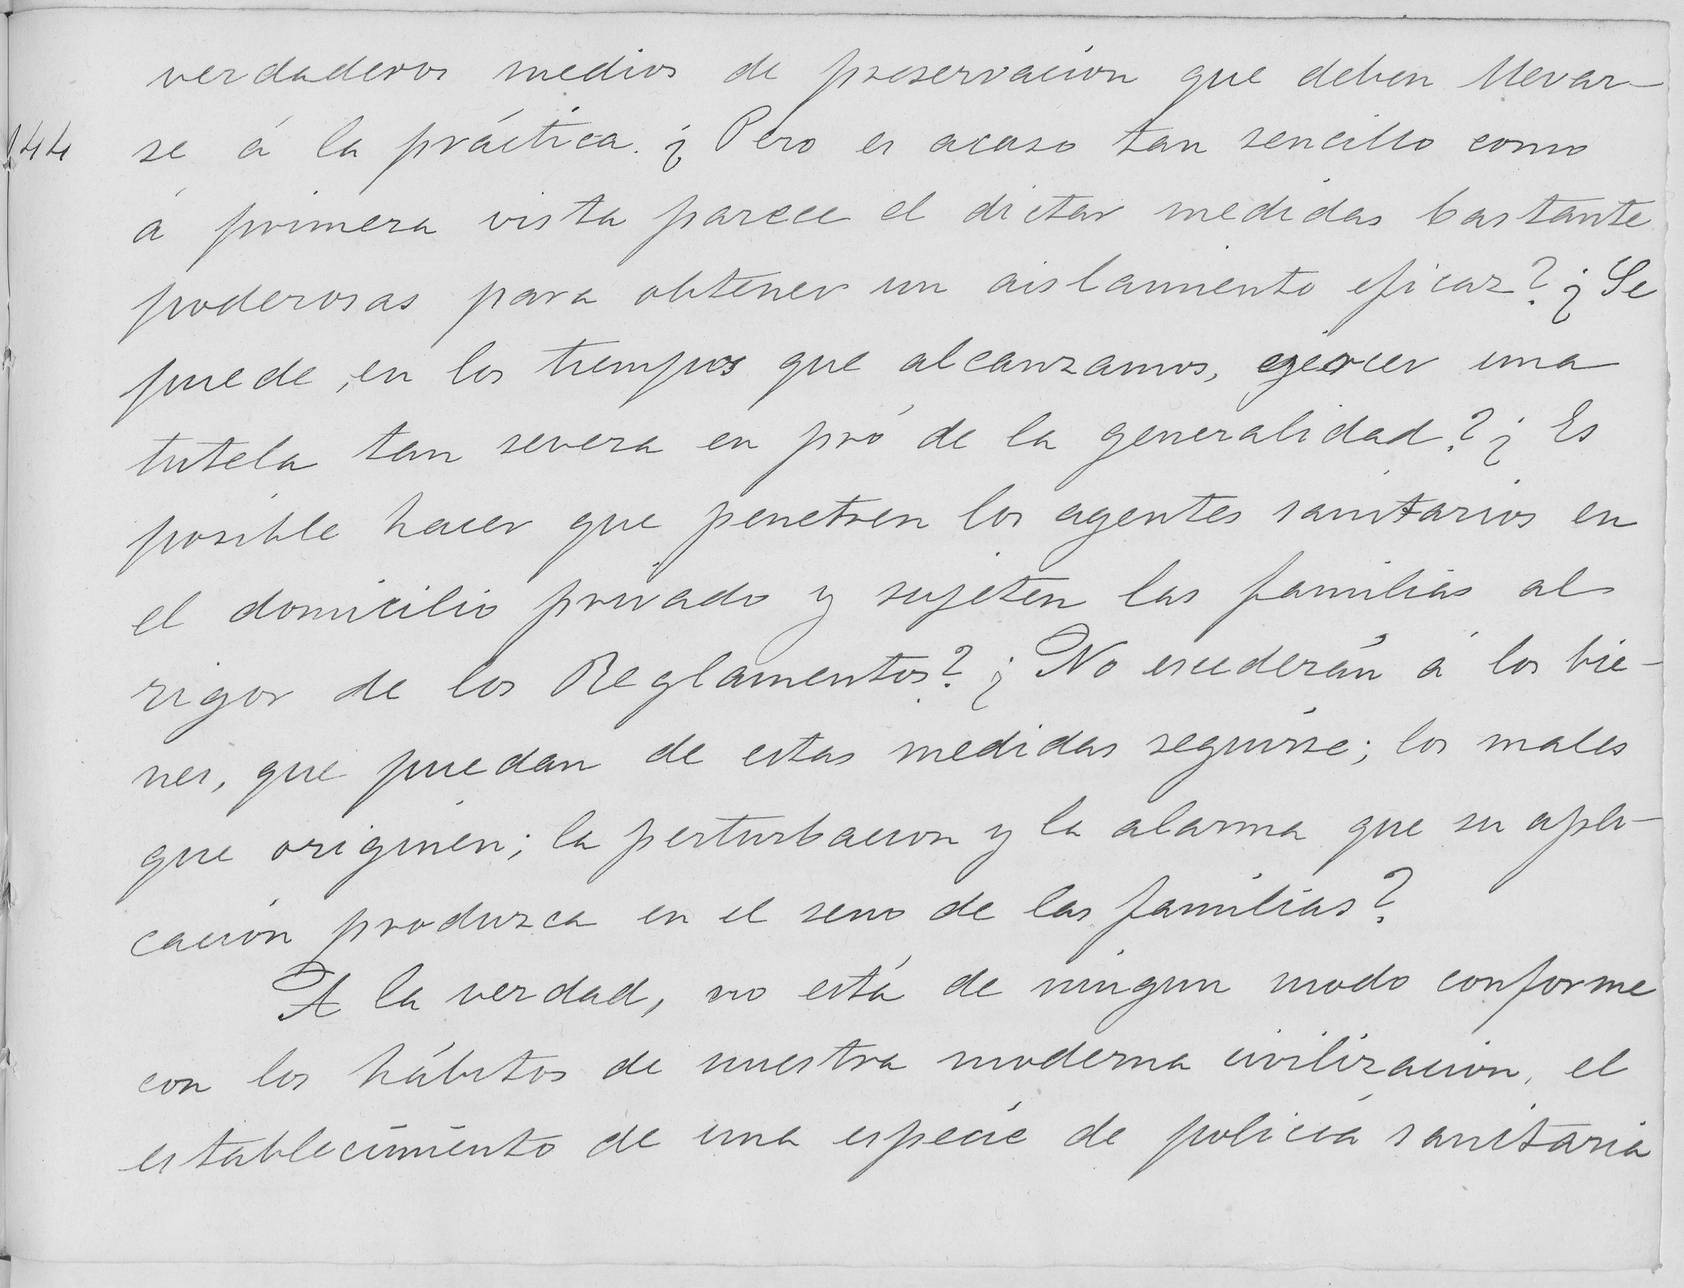 verdaderos medios de preservación que deben llevar-
144
se á la práctica. ¿Pero es acaso tan sencillo como
á primera vista parece el dictar medidas bastante
poderosas para obtener un aislamiento eficaz? ¿Se
puede, en los tiempos que alcanzamos, ejercer una
tutela tan severa en pró de la generalidad? ¿Es
posible hacer que penetren los agentes sanitarios en
el domicilio privado y sujeten las familias al
rigor de los Reglamentos? ¿No escederán á los bie-
nes, que puedan de estas medidas seguirse; los males
que originen; la perturbacion y la alarma que su apli-
cación produzca en el seno de las familias?
A la verdad, no está de ningun modo conforme
con los hábitos de nuestra moderna civilizacion, el
establecimiento de una especie de policía sanitaria